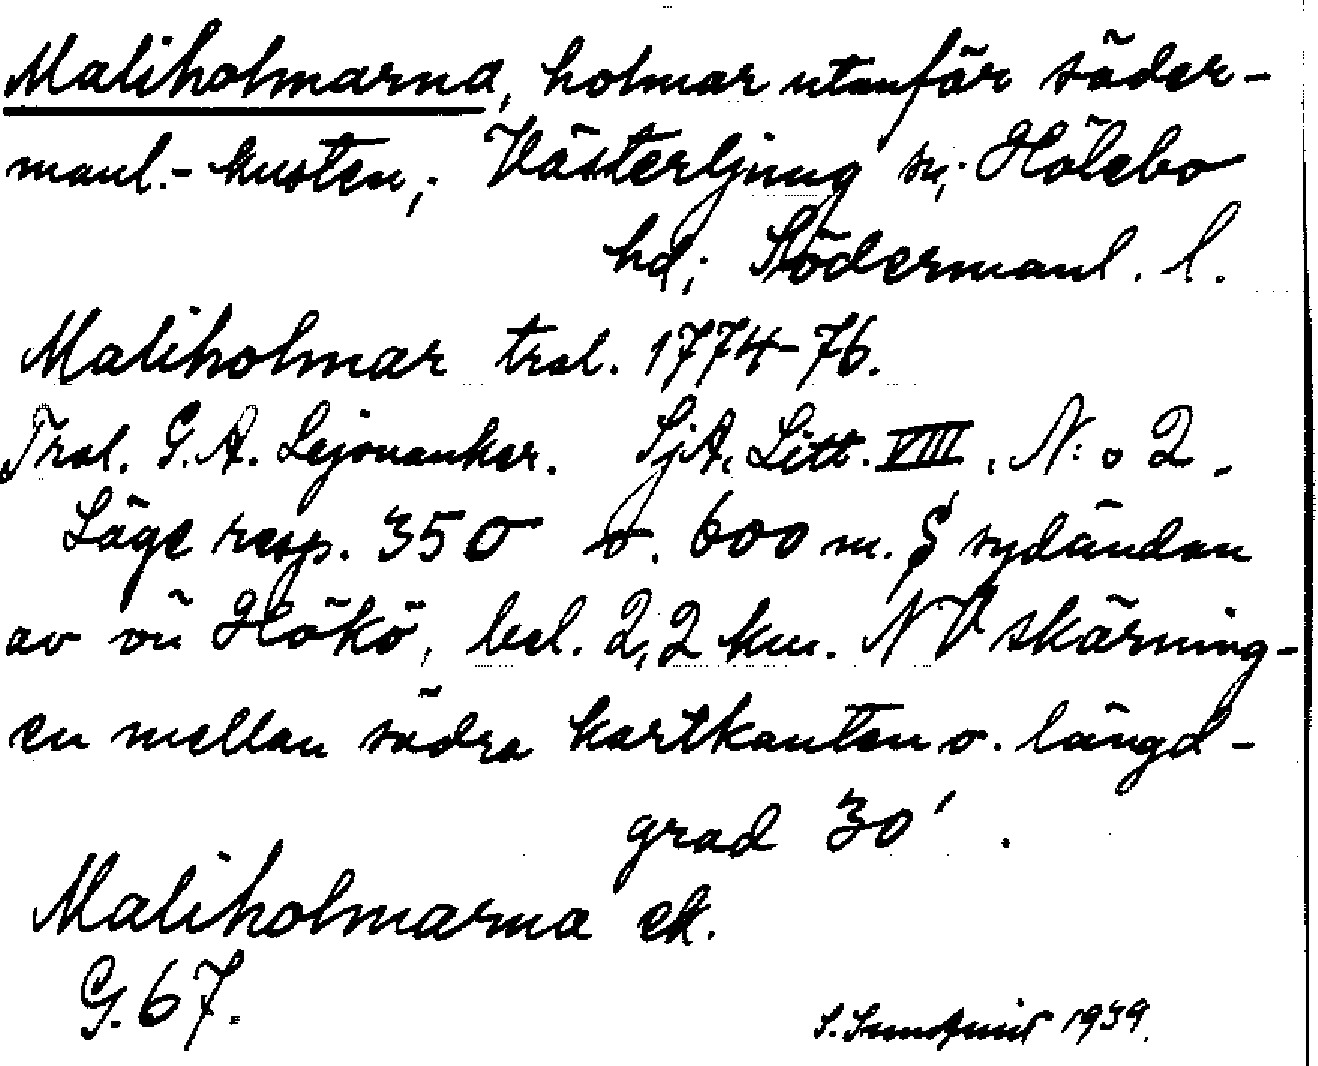 Maliholmarna, holmar utanför söder-
manl.-kusten; Västerljung sn; Hölebo
hd; Södermanl. l.
Maliholmar tral. 1774-76.
Tral. G. A. Lejonanker. SjA. Litt. VIII. N:o 2.
Läge resp. 350 o. 600 m. S sydändan
av ön Hökö, bel. 2,2 km. NV skärning-
en mellan södra kartkanten o. längd-
grad 30'.
Maliholmarna ek.
G. 67.
S. Sundqvist 1939.